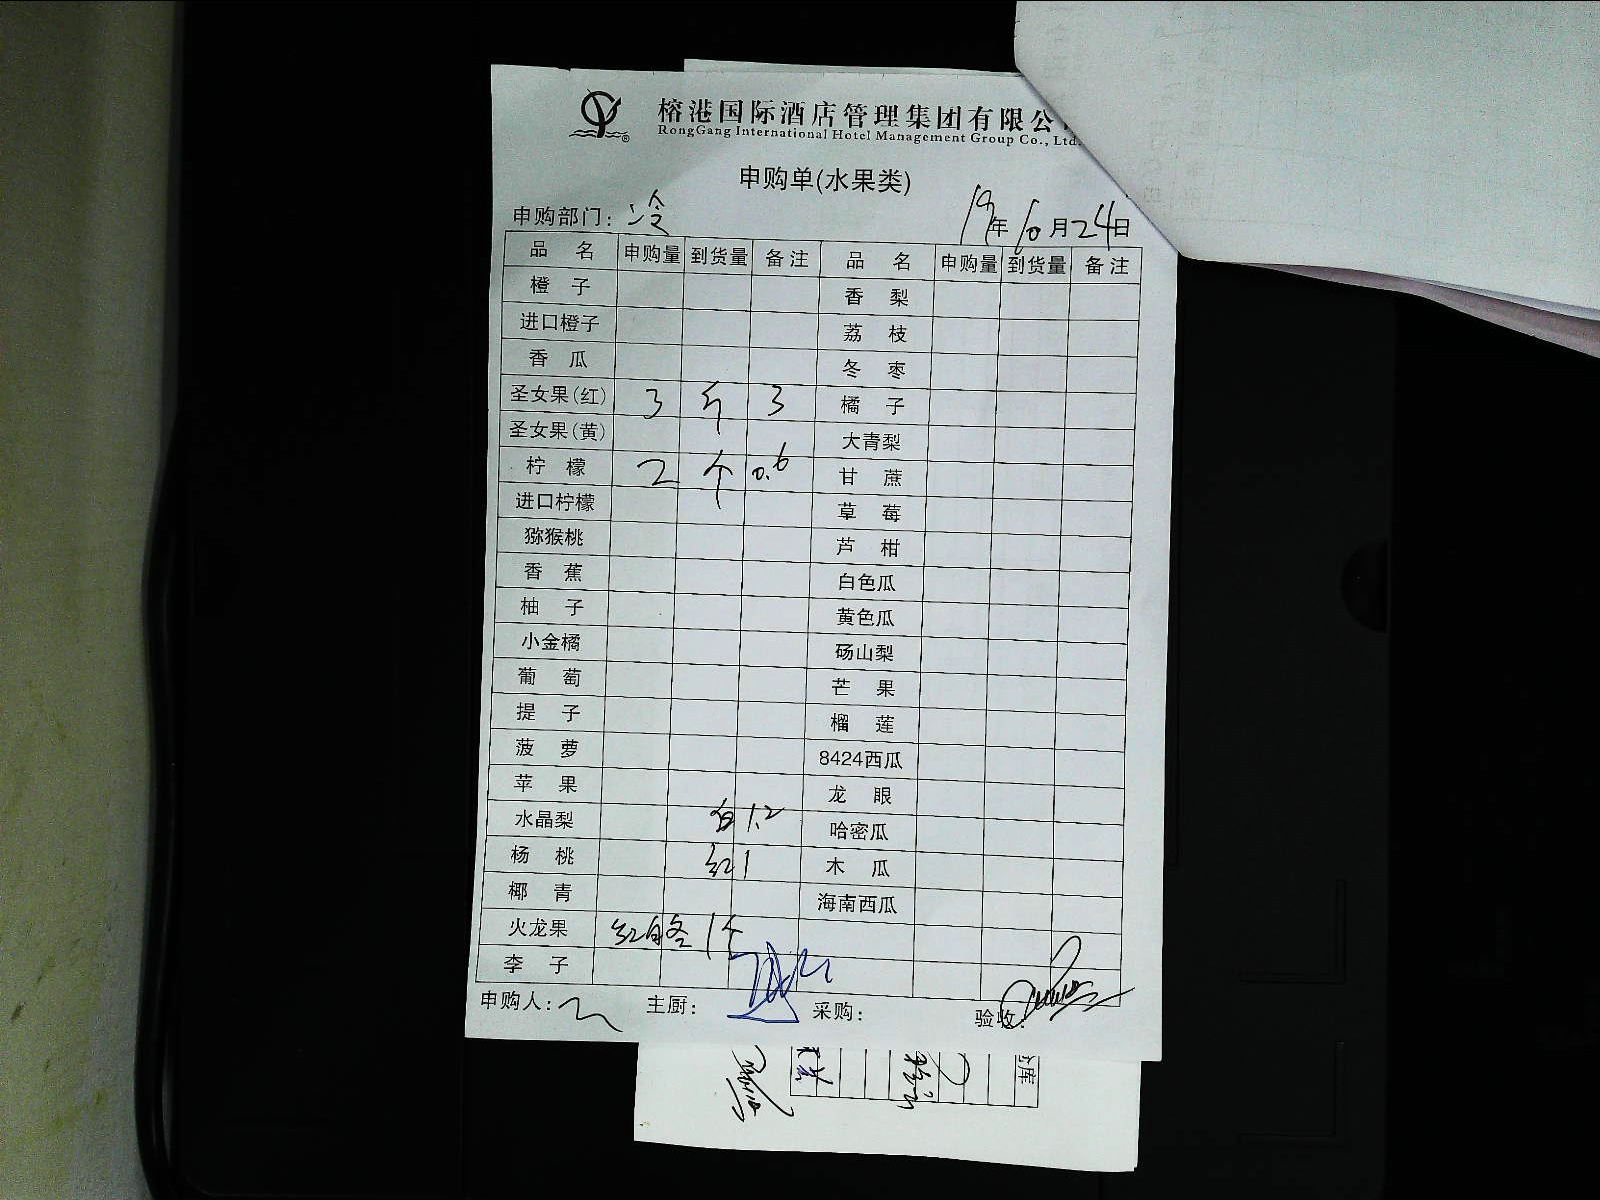 榕港国际酒店管理集团有限公
RongGang International Hotel Management Group Co., Ltd.
申购单(水果类)
申购部门: 冷 19年10月24日
品名 申购量 到货量 备注 品名 申购量 到货量 备注
橙子 香梨
进口橙子 荔枝
香瓜 冬枣
圣女果(红) 3 斤 3 橘子
圣女果(黄) 大青梨
柠檬 2 个 0.6 甘蔗
进口柠檬 草莓
猕猴桃 芦柑
香蕉 白色瓜
柚子 黄色瓜
小金橘 砀山梨
葡萄 芒果
提子 榴莲
菠萝 8424西瓜
苹果 龙眼
水晶梨 白 1.2 哈密瓜
杨桃 红 1 木瓜
椰青 海南西瓜
火龙果 红白各1个
李子
申购人: 主厨: 采购: 验收:
库